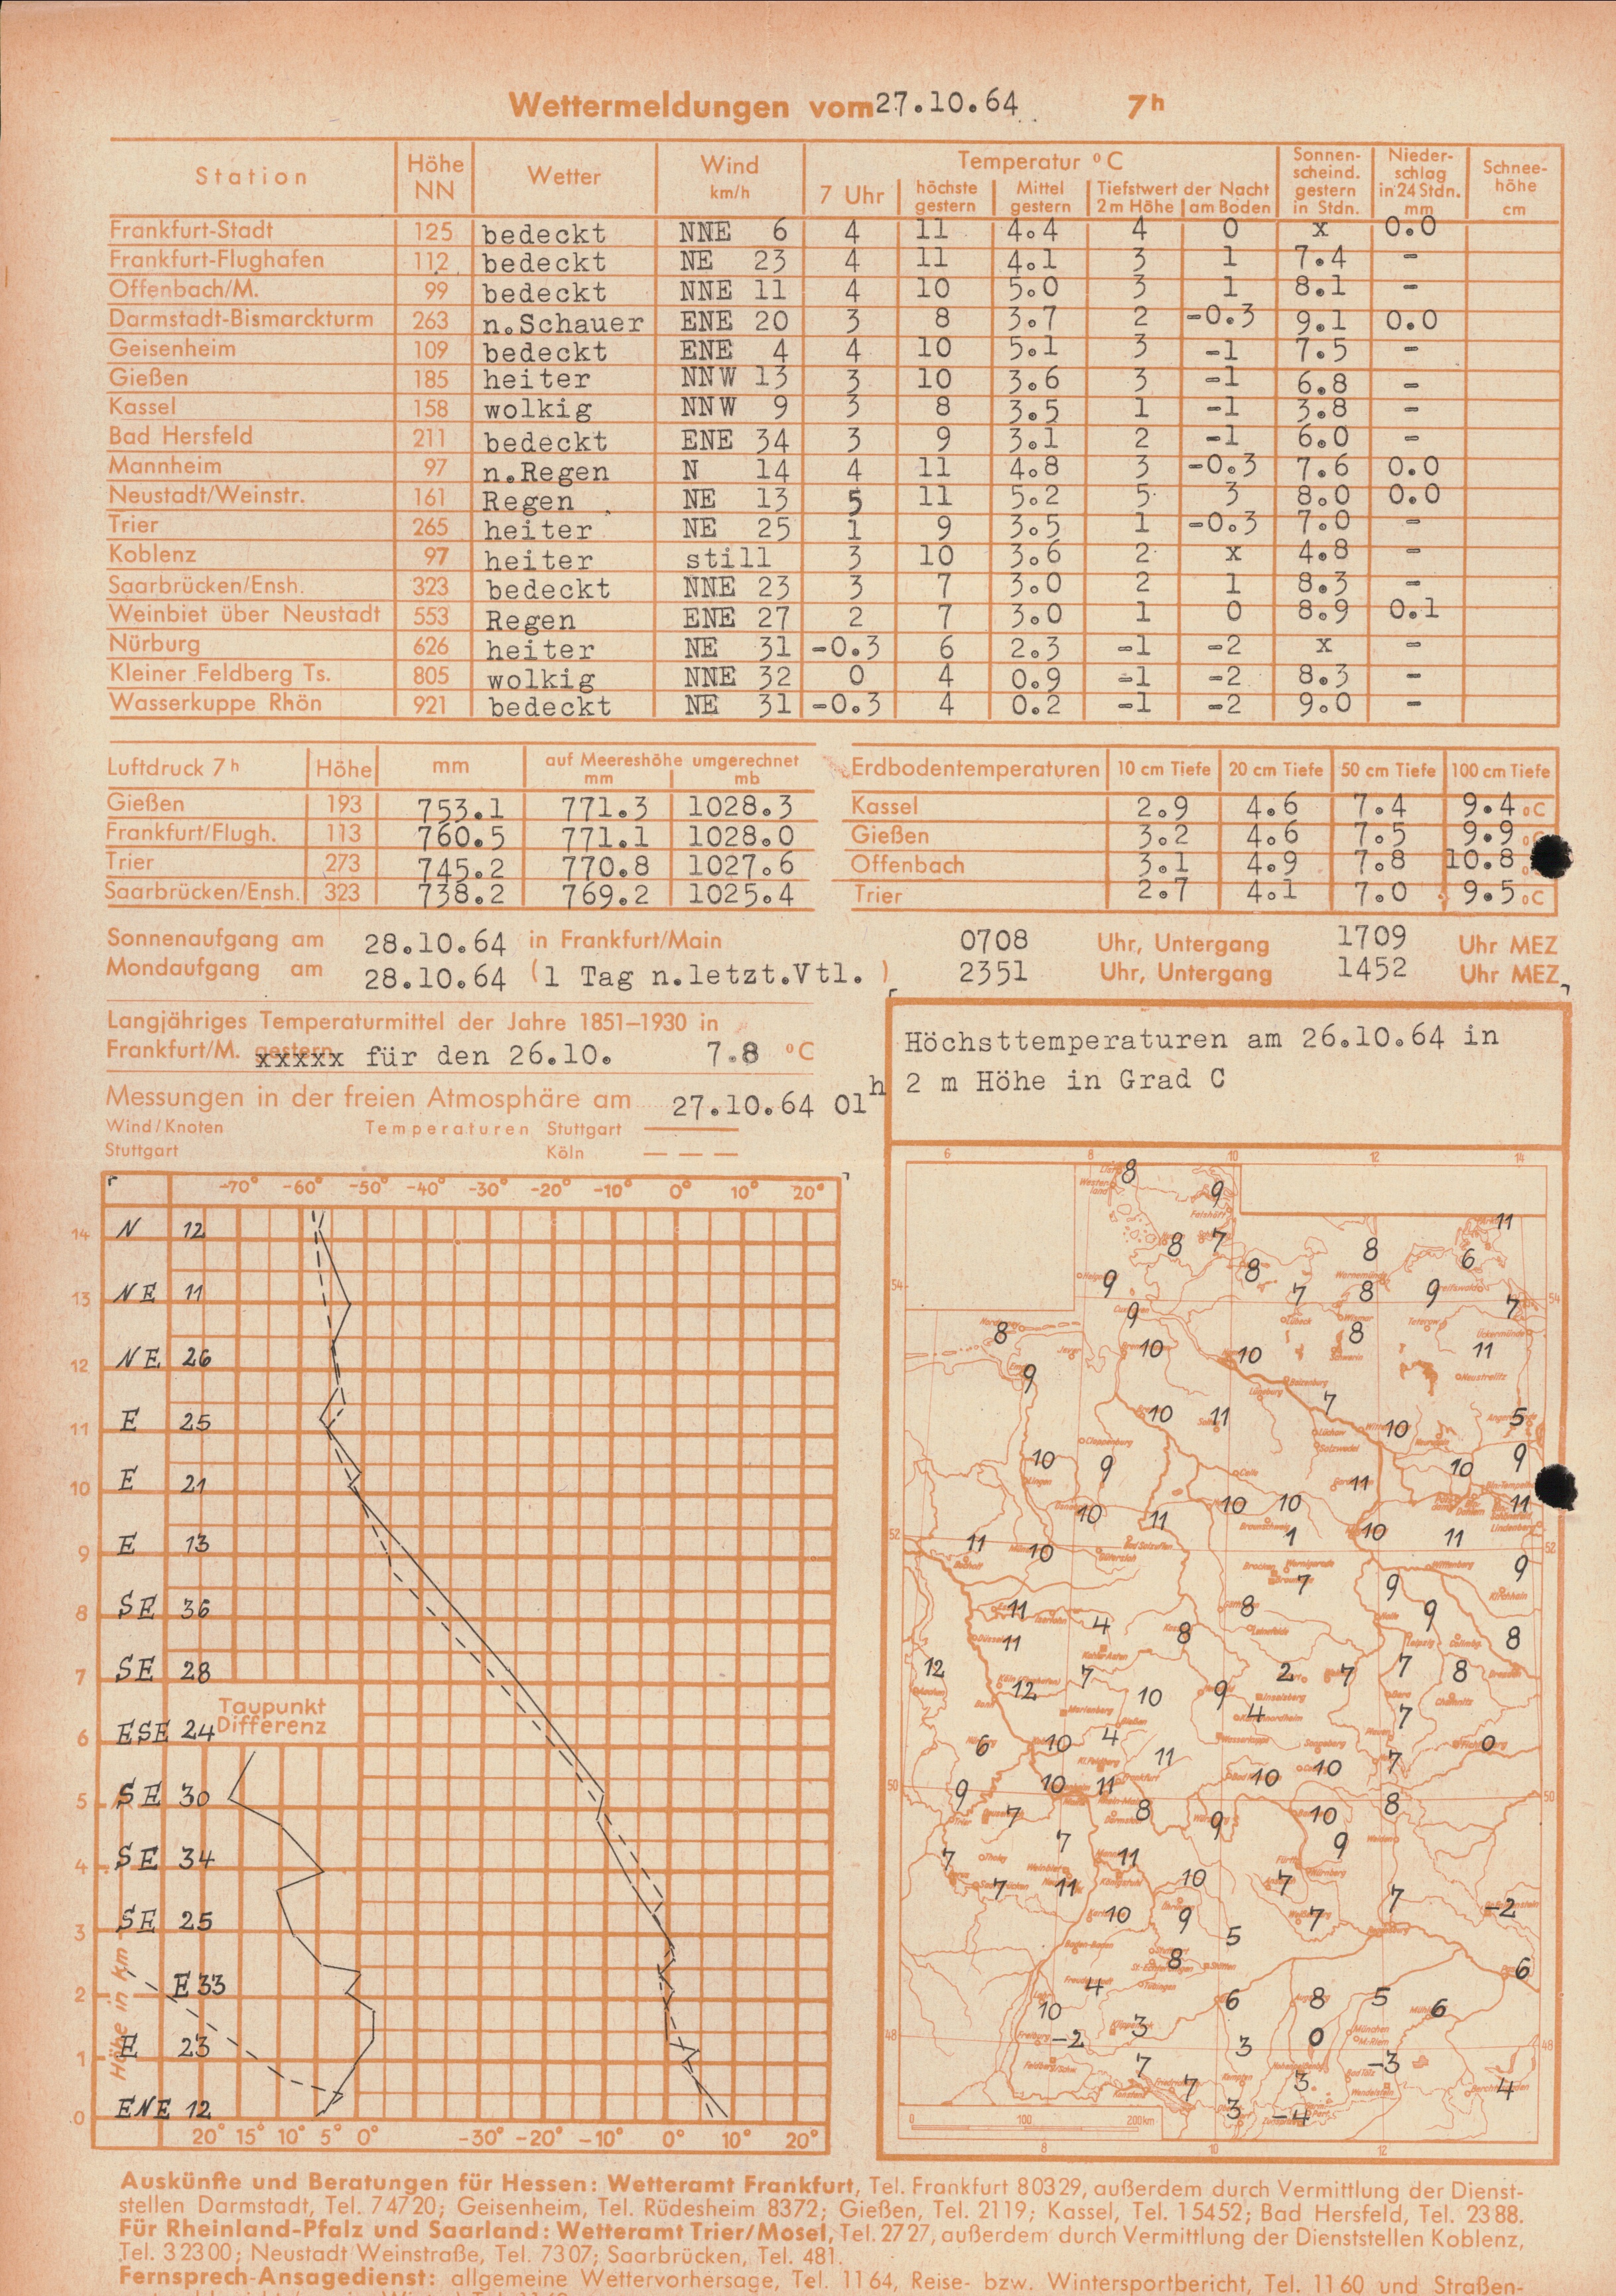 Wettermeldungen vom 27.10.64 7h
Station Höhe NN Wetter Wind km/h Temperatur °C Sonnenscheind. gestern in Stdn. Niederschlag in 24 Stdn. mm Schneehöhe cm
7 Uhr höchste gestern Mittel gestern Tiefstwert der Nacht 2m Höhe am Boden
Frankfurt-Stadt 125 bedeckt NNE 6 4 11 4.4 4 0 x 0.0
Frankfurt-Flughafen 112 bedeckt NE 23 4 11 4.1 3 1 7.4 -
Offenbach/M. 99 bedeckt NNE 11 4 10 5.0 3 1 8.1 -
Darmstadt-Bismarckturm 263 n.Schauer ENE 20 3 8 3.7 2 -0.3 9.1 0.0
Geisenheim 109 bedeckt ENE 4 4 10 5.1 3 -1 7.5 -
Gießen 185 heiter NNW 13 3 10 3.6 3 -1 6.8 -
Kassel 158 wolkig NNW 9 3 8 3.5 1 -1 3.8 -
Bad Hersfeld 211 bedeckt ENE 34 3 9 3.1 2 -1 6.0 -
Mannheim 97 n.Regen N 14 4 11 4.8 3 -0.3 7.6 0.0
Neustadt/Weinstr. 161 Regen NE 13 5 11 5.2 5 3 8.0 0.0
Trier 265 heiter NE 25 1 9 3.5 1 -0.3 7.0 -
Koblenz 97 heiter still 3 10 3.6 2 x 4.8 -
Saarbrücken/Ensh. 323 bedeckt NNE 23 3 7 3.0 2 1 8.3 -
Weinbiet über Neustadt 553 Regen ENE 27 2 7 3.0 1 0 8.9 0.1
Nürburg 626 heiter NE 31 -0.3 6 2.3 -1 -2 x -
Kleiner Feldberg Ts. 805 wolkig NNE 32 0 4 0.9 -1 -2 8.3 -
Wasserkuppe Rhön 921 bedeckt NE 31 -0.3 4 0.2 -1 -2 9.0 -
Luftdruck 7h Höhe mm auf Meereshöhe umgerechnet mm mb
Gießen 193 753.1 771.3 1028.3
Frankfurt/Flugh. 113 760.5 771.1 1028.0
Trier 273 745.2 770.8 1027.6
Saarbrücken/Ensh. 323 738.2 769.2 1025.4
Erdbodentemperaturen 10 cm Tiefe 20 cm Tiefe 50 cm Tiefe 100 cm Tiefe
Kassel 2.9 4.6 7.4 9.4 °C
Gießen 3.2 4.6 7.5 9.9 °C
Offenbach 3.1 4.9 7.8 10.8
Trier 2.7 4.1 7.0 9.5 °C
Sonnenaufgang am 28.10.64 in Frankfurt/Main 0708 Uhr, Untergang 1709 Uhr MEZ
Mondaufgang am 28.10.64 (1 Tag n.letzt.Vtl. ) 2351 Uhr, Untergang 1452 Uhr MEZ
Langjähriges Temperaturmittel der Jahre 1851–1930 in
Frankfurt/M. xxxxx für den 26.10. 7.8 °C
Messungen in der freien Atmosphäre am 27.10.64 01h
Wind/Knoten Temperaturen Stuttgart
Stuttgart Köln
Höchsttemperaturen am 26.10.64 in
2 m Höhe in Grad C
-70° -60° -50° -40° -30° -20° -10° 0° 10° 20°
14 N 12
13 NE 11
12 NE 26
11 E 25
10 E 21
9 E 13
8 SE 36
7 SE 28
Taupunkt
Differenz
6 ESE 24
5 SE 30
4 SE 34
3 SE 25
2 E 33
1 E 23
0 ENE 12
Höhe in km
20° 15° 10° 5° 0° -30° -20° -10° 0° 10° 20°
6 8 10 12 14
8
9
11
8 7 8 8 6
9 7 8 9 7
9
8 10 10 8 11
9 7
10 11 10 5
10 9 11 10 9
10 11 10 10 11
1 10 11
11 10 9
7 9
11 4 8 8 9
11 8
12 12 7 10 9 2 7 7 8
4 7
6 10 4 11 0
10 10 7
9 10 11
7 8 9 10 8
7 9
7 11
7 11 10 7 7 -2
10 9 5 7
8 6
4
10 6 8 5 6
-2 3 3 0
7 -3
7 3 4
3 -4
0 100 200 km
8 10 12
Auskünfte und Beratungen für Hessen: Wetteramt Frankfurt, Tel. Frankfurt 80329, außerdem durch Vermittlung der Dienst-
stellen Darmstadt, Tel. 74720; Geisenheim, Tel. Rüdesheim 8372; Gießen, Tel. 2119; Kassel, Tel. 15452; Bad Hersfeld, Tel. 2388.
Für Rheinland-Pfalz und Saarland: Wetteramt Trier/Mosel, Tel. 2727, außerdem durch Vermittlung der Dienststellen Koblenz,
Tel. 32300; Neustadt Weinstraße, Tel. 7307; Saarbrücken, Tel. 481.
Fernsprech-Ansagedienst: allgemeine Wettervorhersage, Tel. 1164, Reise- bzw. Wintersportbericht, Tel. 1160 und Straßen-